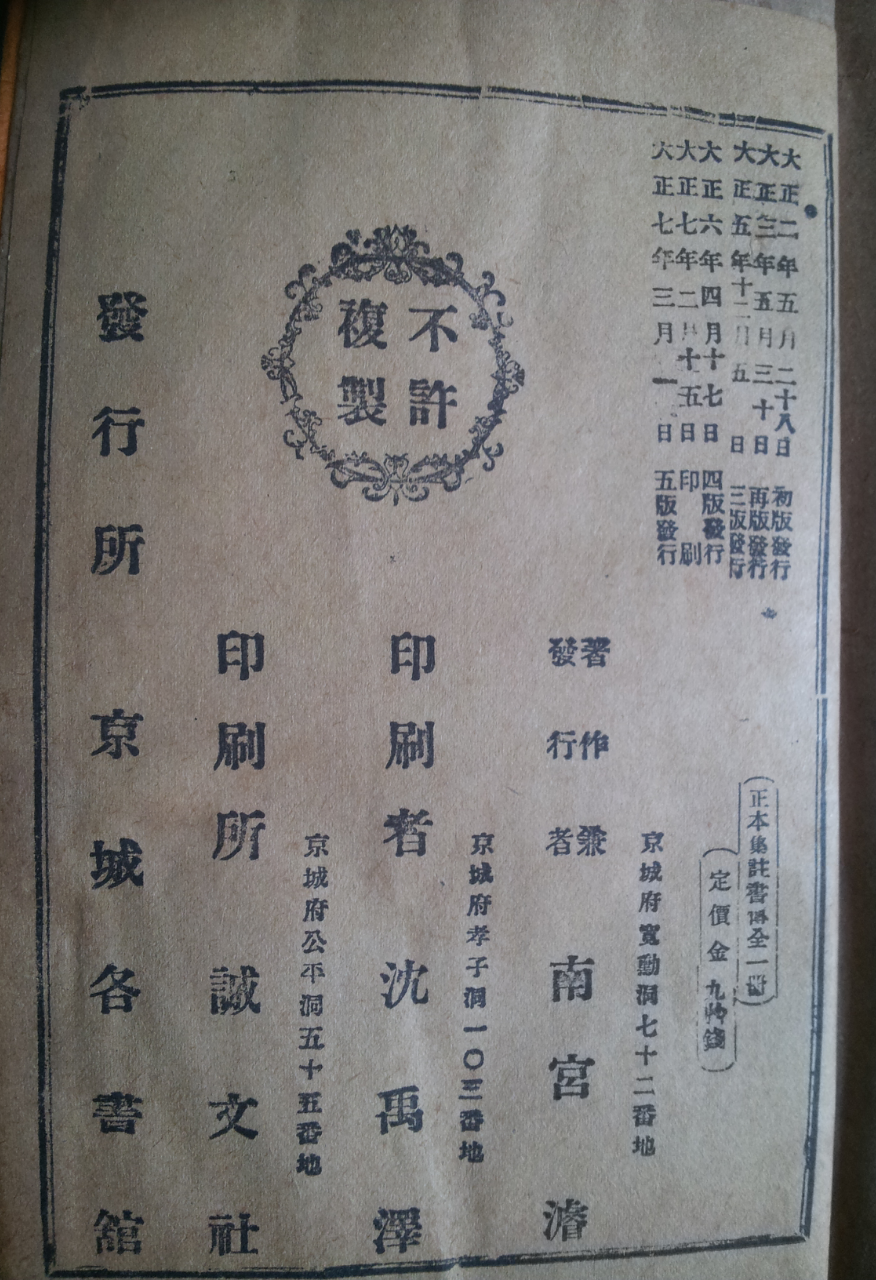 大正二年五月二十八日 初版發行
大正三年五月三十日 再版發行
大正五年十二月五日 三版發行
大正六年四月十七日 四版發行
大正七年二月十五日 印刷
大正七年三月一日 五版發行
正本集註書傳全一冊
定價金九十錢
不許
複製
京城府寬勳洞七十二番地
著作兼
發行者
南宮濬
京城府孝子洞一〇三番地
印刷者 沈禹澤
京城府公平洞五十五番地
印刷所 誠文社
發行所 京城各書舘